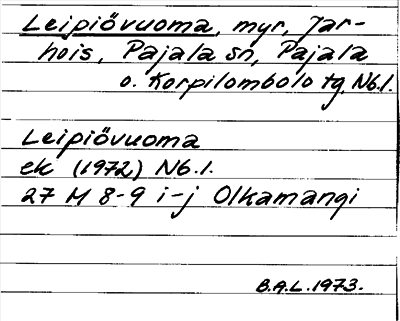 Leipiövuoma, myr, Jar-
hois, Pajala sn, Pajala
o. Korpilombolo tg, Nb.l.
Leipiövuoma
ek (1972) Nb.l.
27 M 8-9 i-j Olkamangi
B.A.L. 1973.